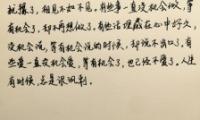 就懂了,相见不如不见。有些事一直没机会做,等
有机会了,却不再想做了。有些话埋藏在心中好久,
没机会说,等有机会说的时候,却说不出口了,有
些爱一直没机会爱,等有机会了,已经不爱了。人生
有时候,总是很讽刺。